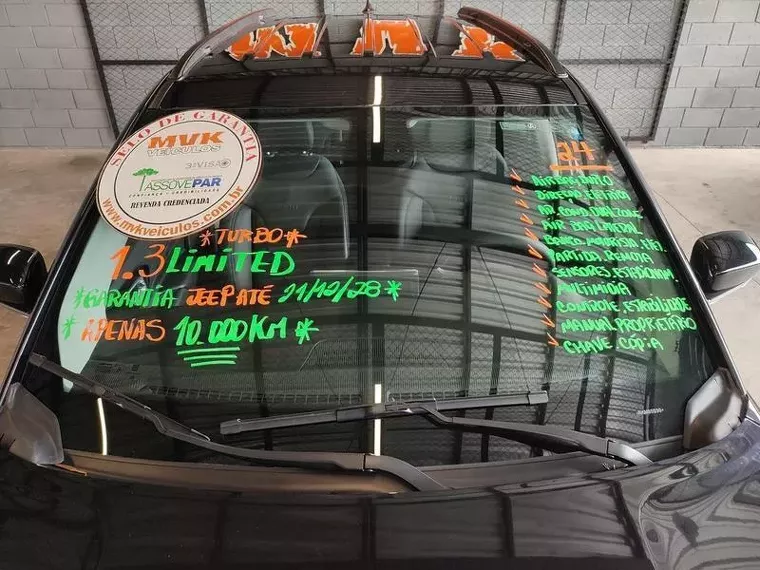 SELO DE GARANTIA
MVK
VEÍCULOS
3VISÃO
ASSOVEPAR
CONFIANÇA - CREDIBILIDADE
REVENDA CREDENCIADA
www.mvkveiculos.com.br
*TURBO*
1.3 LIMITED
*GARANTIA JEEP ATÉ 21/12/28*
*APENAS 10.000KM*
24
AIR BAG DUPLO
DIREÇÃO ELÉTRICA
AR COND. DUAL ZONE
AIR BAG LATERAL
BANCO MOTORISTA ELÉT.
PARTIDA REMOTA
SENSORES ESTACIONAM.
MULTIMÍDIA
CONTROLE ESTABILIDADE
MANUAL PROPRIETÁRIO
CHAVE CÓPIA